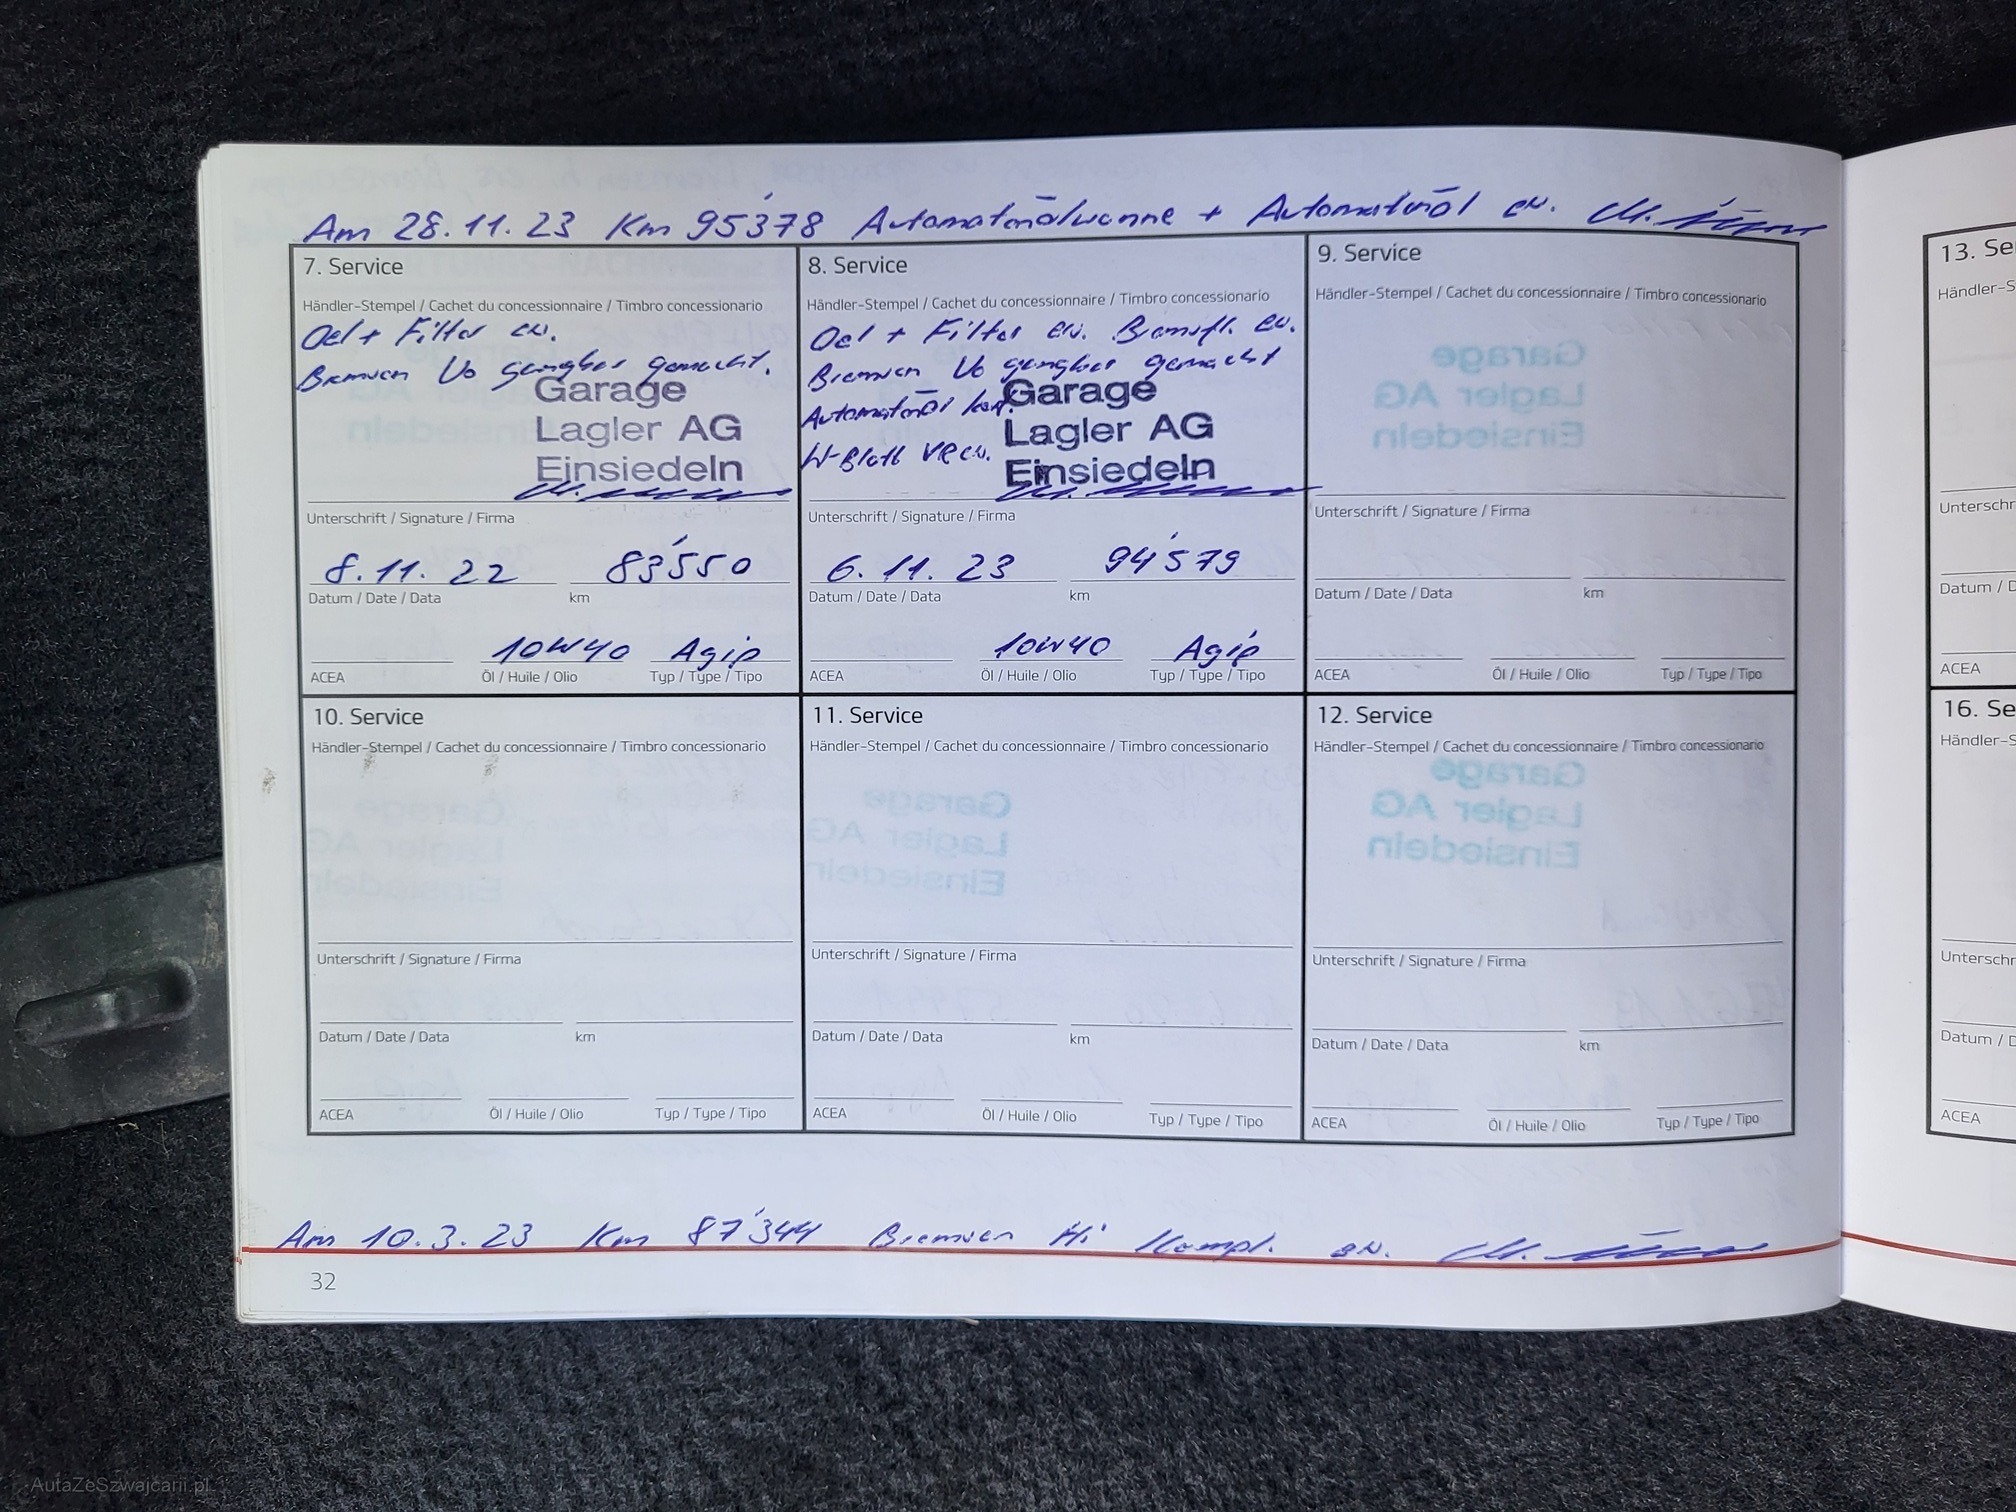 Am 28.11.23 Km 95'378 Automatenölwanne + Automatenöl ew.
7. Service
Händler-Stempel / Cachet du concessionnaire / Timbro concessionario
Oel + Filter ew.
Bremsen Vo gangbar gemacht.
Garage
Lagler AG
Einsiedeln
Unterschrift / Signature / Firma
8.11.22 83'550
Datum / Date / Data km
10W40 Agip
ACEA Öl / Huile / Olio Typ / Type / Tipo
8. Service
Händler-Stempel / Cachet du concessionnaire / Timbro concessionario
Oel + Filter ew. Bremsfl. ew.
Bremsen Vo gangbar gemacht
Automatenöl
W-Blatt VR ew.
Garage
Lagler AG
Einsiedeln
Unterschrift / Signature / Firma
6.11.23 94'579
Datum / Date / Data km
10W40 Agip
ACEA Öl / Huile / Olio Typ / Type / Tipo
9. Service
Händler-Stempel / Cachet du concessionnaire / Timbro concessionario
Garage
Lagler AG
Einsiedeln
Unterschrift / Signature / Firma
Datum / Date / Data km
ACEA Öl / Huile / Olio Typ / Type / Tipo
10. Service
Händler-Stempel / Cachet du concessionnaire / Timbro concessionario
Garage
Lagler AG
Einsiedeln
Unterschrift / Signature / Firma
Datum / Date / Data km
ACEA Öl / Huile / Olio Typ / Type / Tipo
11. Service
Händler-Stempel / Cachet du concessionnaire / Timbro concessionario
Garage
Lagler AG
Einsiedeln
Unterschrift / Signature / Firma
Datum / Date / Data km
ACEA Öl / Huile / Olio Typ / Type / Tipo
12. Service
Händler-Stempel / Cachet du concessionnaire / Timbro concessionario
Garage
Lagler AG
Einsiedeln
Unterschrift / Signature / Firma
Datum / Date / Data km
ACEA Öl / Huile / Olio Typ / Type / Tipo
Am 10.3.23 Km 87'344 Bremsen Hi Kompl. ew.
32
13. Se
Händler-S
Unterschr
Datum / D
ACEA
16. Se
Händler-S
Unterschr
Datum / D
ACEA
AutaZeSzwajcarii.pl